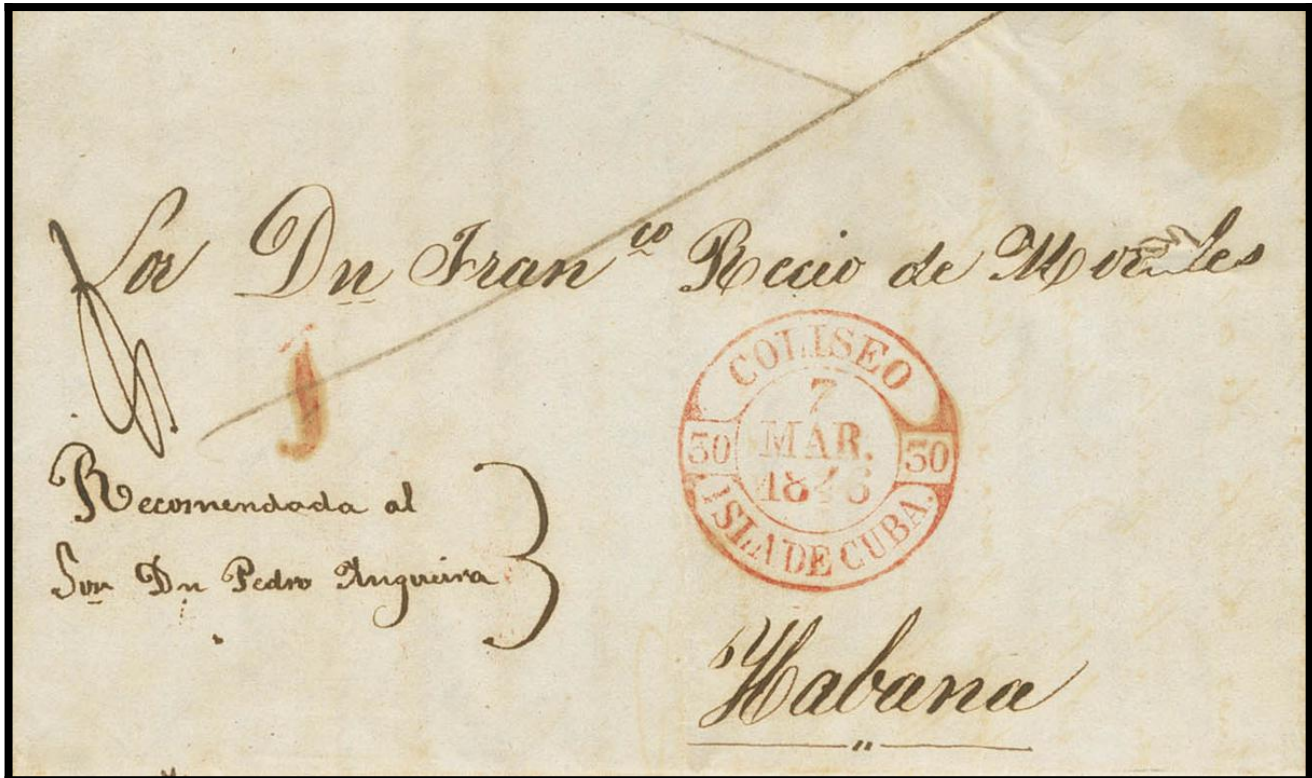 Sor Dn Franco Recio de Morales
1
COLISEO
7
MAR.
30 30
1846
ISLA DE CUBA.
Recomendada al
Sor Dn Pedro Angueira
Habana